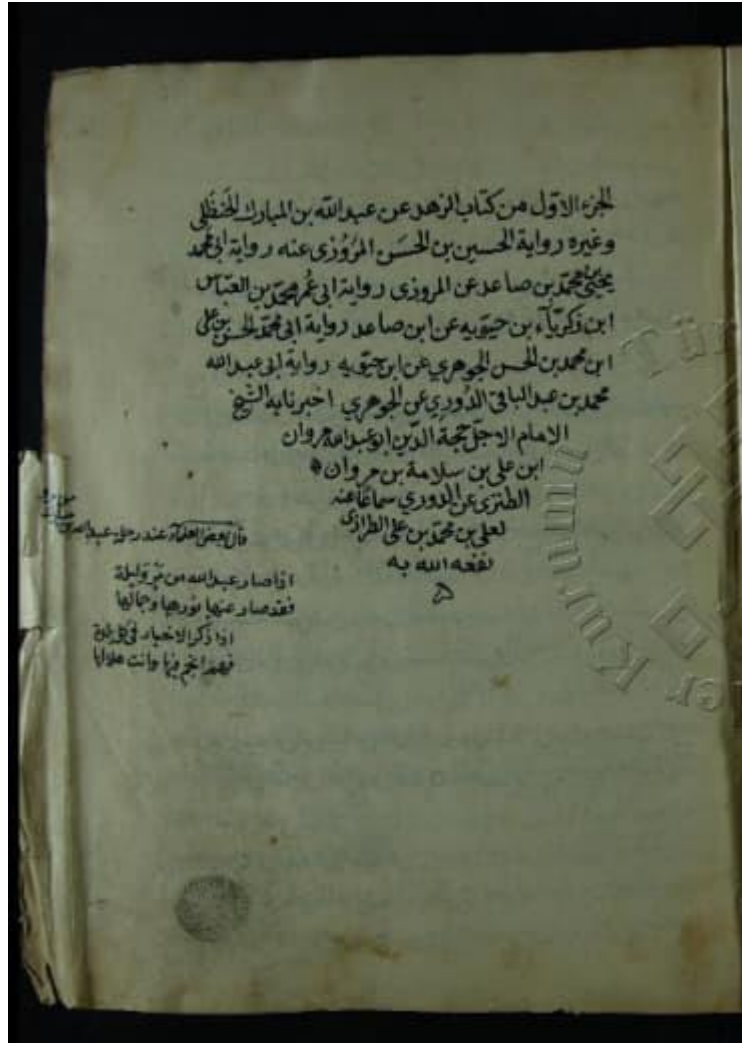 الجزء الاول من كتاب الزهد عن عبد الله بن المبارك الحنظلي
وغيره رواية الحسين بن الحسن المروزى عنه رواية ابى محمد
يحيى بن محمد بن صاعد عن المروزى رواية ابى عمر محمد بن العباس
ابن زكرياء بن حيويه عن ابن صاعد رواية ابى محمد الحسن بن على
ابن محمد بن الحسن الجوهري عن ابن حيويه رواية ابى عبد الله
محمد بن عبد الباقى الدوري عن الجوهري اخبرنا به الشيخ
الامام الاجل حجة الدين ابو عبد الله مروان
ابن على بن سلامة بن مروان
الطنزى عن الدوري سماعا عنه
لعلى بن محمد بن على الطرازى
نفعه الله به
قال بعض العلماء عند رحلة عبد الله
اذا صار عبد الله من مرو ليلة
فقد صار عنها نورها وجمالها
اذا ذكر الاخيار فى كل بلدة
فهم انجم فيها وانت هلالها